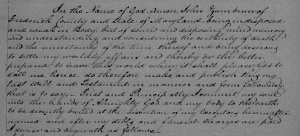 In the Name of God Amen John
Frederick County and State of Maryland being indisposed
and weak in Body but of sound and disposing mind memory
and understanding considering the certainty of death
and the uncertainty of the time thereof and being desirous
to settle my worldly affairs and thereby be the better
prepared to leave this world when it shall please God to
call me hence do therefore make and publish this my
last will and Testament in manner and form following
that is to say First and Principally I commit my soul
into the Hands of Almighty God and my body to the earth
to be decently buried at the discretion of my Executors hereinafter
named and after my debts and funeral charges are paid
I devise and bequeath as follows